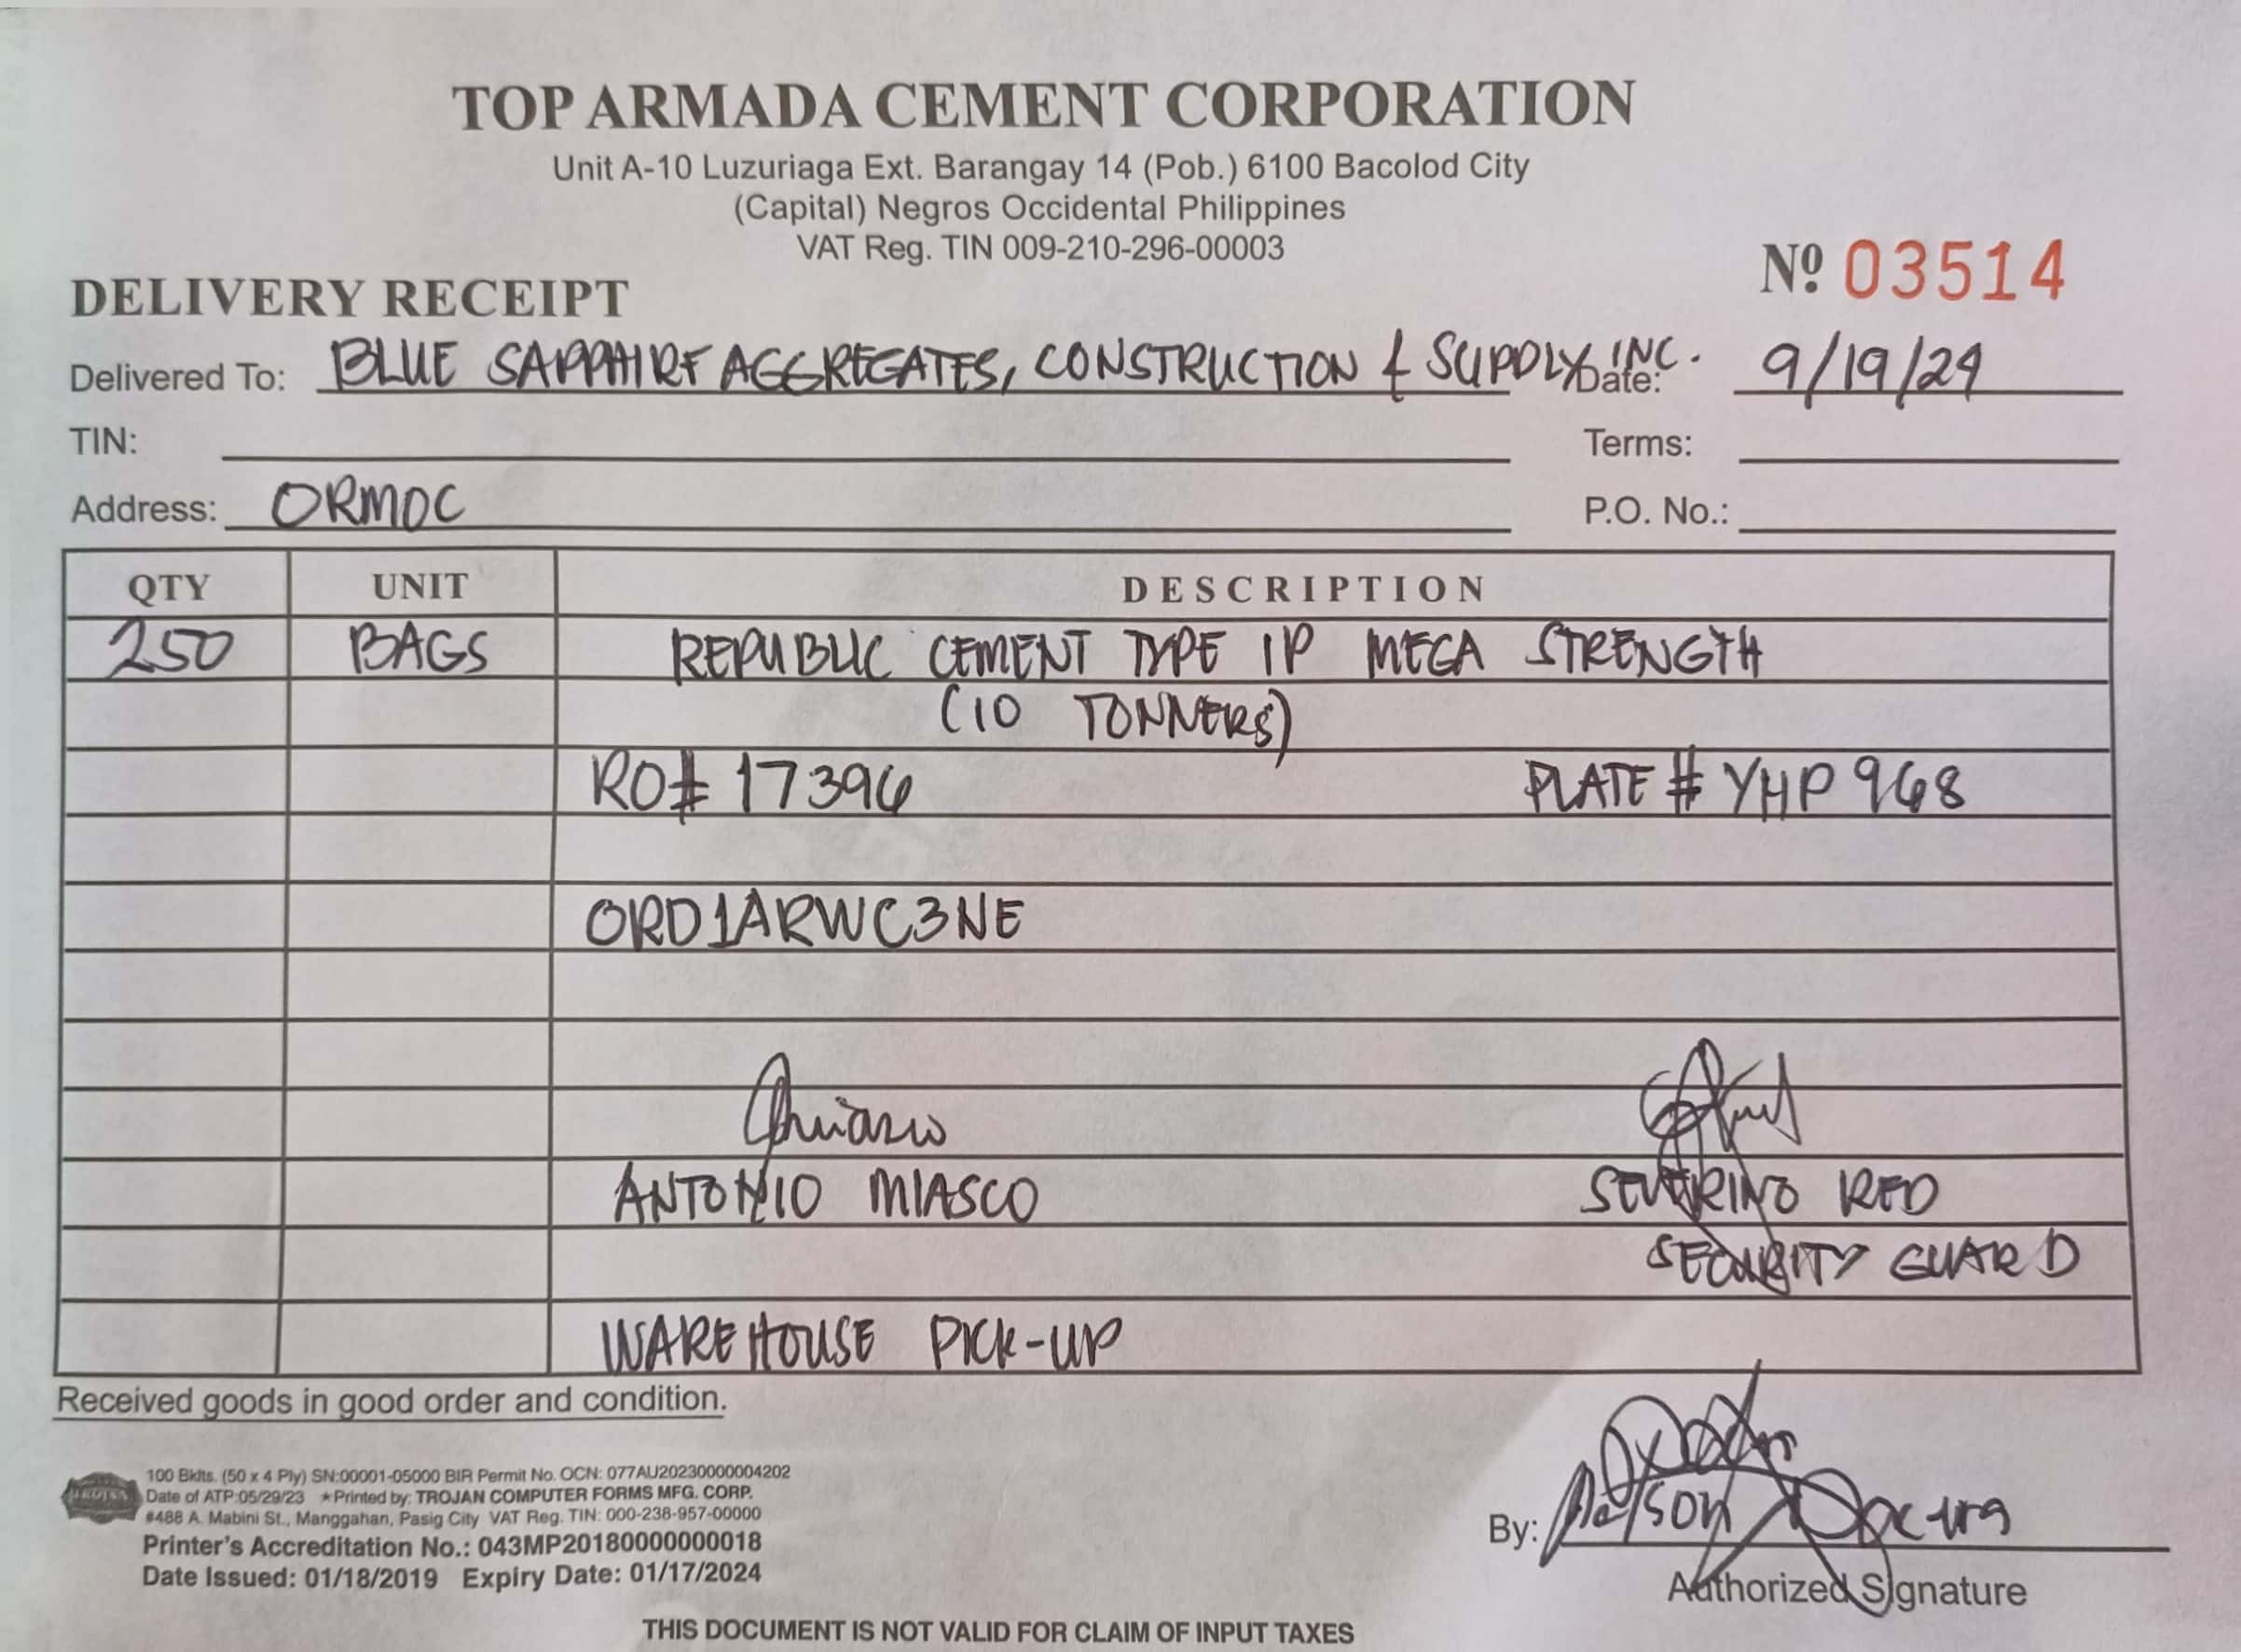 TOP ARMADA CEMENT CORPORATION
Unit A-10 Luzuriaga Ext. Barangay 14 (Pob.) 6100 Bacolod City
(Capital) Negros Occidental Philippines
VAT Reg. TIN 009-210-296-00003
Nº 03514
DELIVERY RECEIPT
Delivered To: BLUE SAPPHIRE AGGREGATES, CONSTRUCTION & SUPPLY INC. Date: 9/19/24
TIN: Terms:
Address: ORMOC P.O. No.:
QTY UNIT DESCRIPTION
250 BAGS REPUBLIC CEMENT TYPE 1P MEGA STRENGTH
(10 TONNERS)
RO# 17396 PLATE # YHP 968
ORD1ARWC3NE
ANTONIO MIASCO SEVERINO RED
SECURITY GUARD
WAREHOUSE PICK-UP
Received goods in good order and condition.
100 Bklts. (50 x 4 Ply) SN:00001-05000 BIR Permit No. OCN: 077AU20230000004202
Date of ATP:05/29/23 ★Printed by: TROJAN COMPUTER FORMS MFG. CORP.
#488 A. Mabini St., Manggahan, Pasig City VAT Reg. TIN: 000-238-957-00000
Printer's Accreditation No.: 043MP20180000000018
Date Issued: 01/18/2019 Expiry Date: 01/17/2024
By:
Authorized Signature
THIS DOCUMENT IS NOT VALID FOR CLAIM OF INPUT TAXES